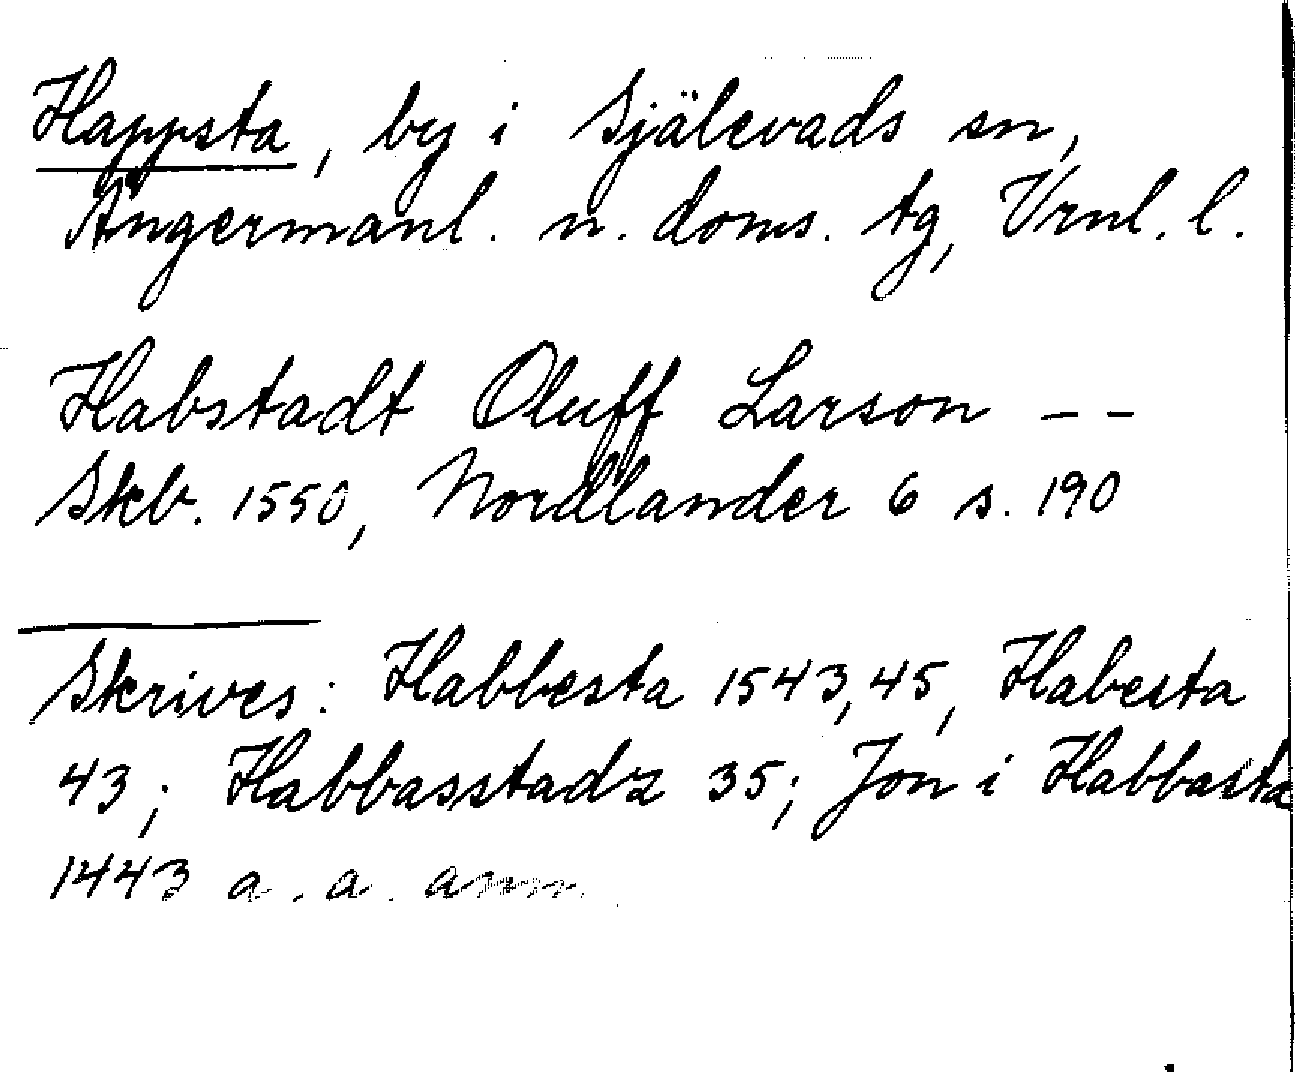 Happsta, by i Själevads sn,
Ångermanl. n. doms. tg, Vrnl. l.
Habstadt Oluff Larson – –
Skb. 1550, Nordlander 6 s. 190
Skrives: Habbesta 1543, 45, Habesta
43; Habbasstadz 35; Jon i Habbasta
1443 a. a. anm.